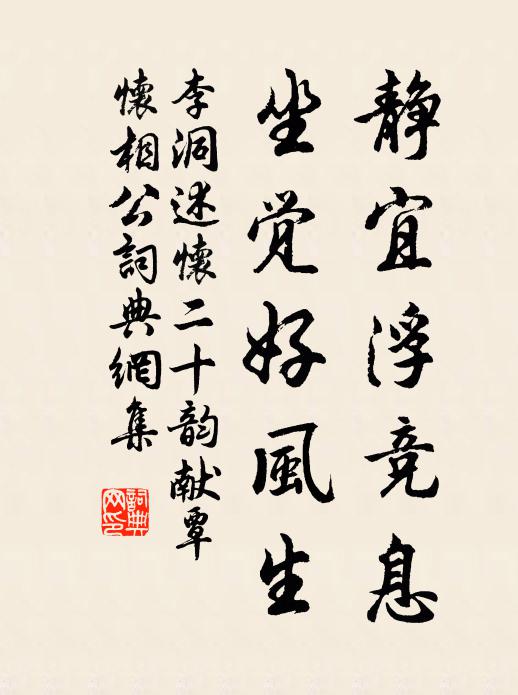 静宜浮竞息
坐觉好風生
李洞述懷二十韵献覃
懷相公詞典網集
詞典网印